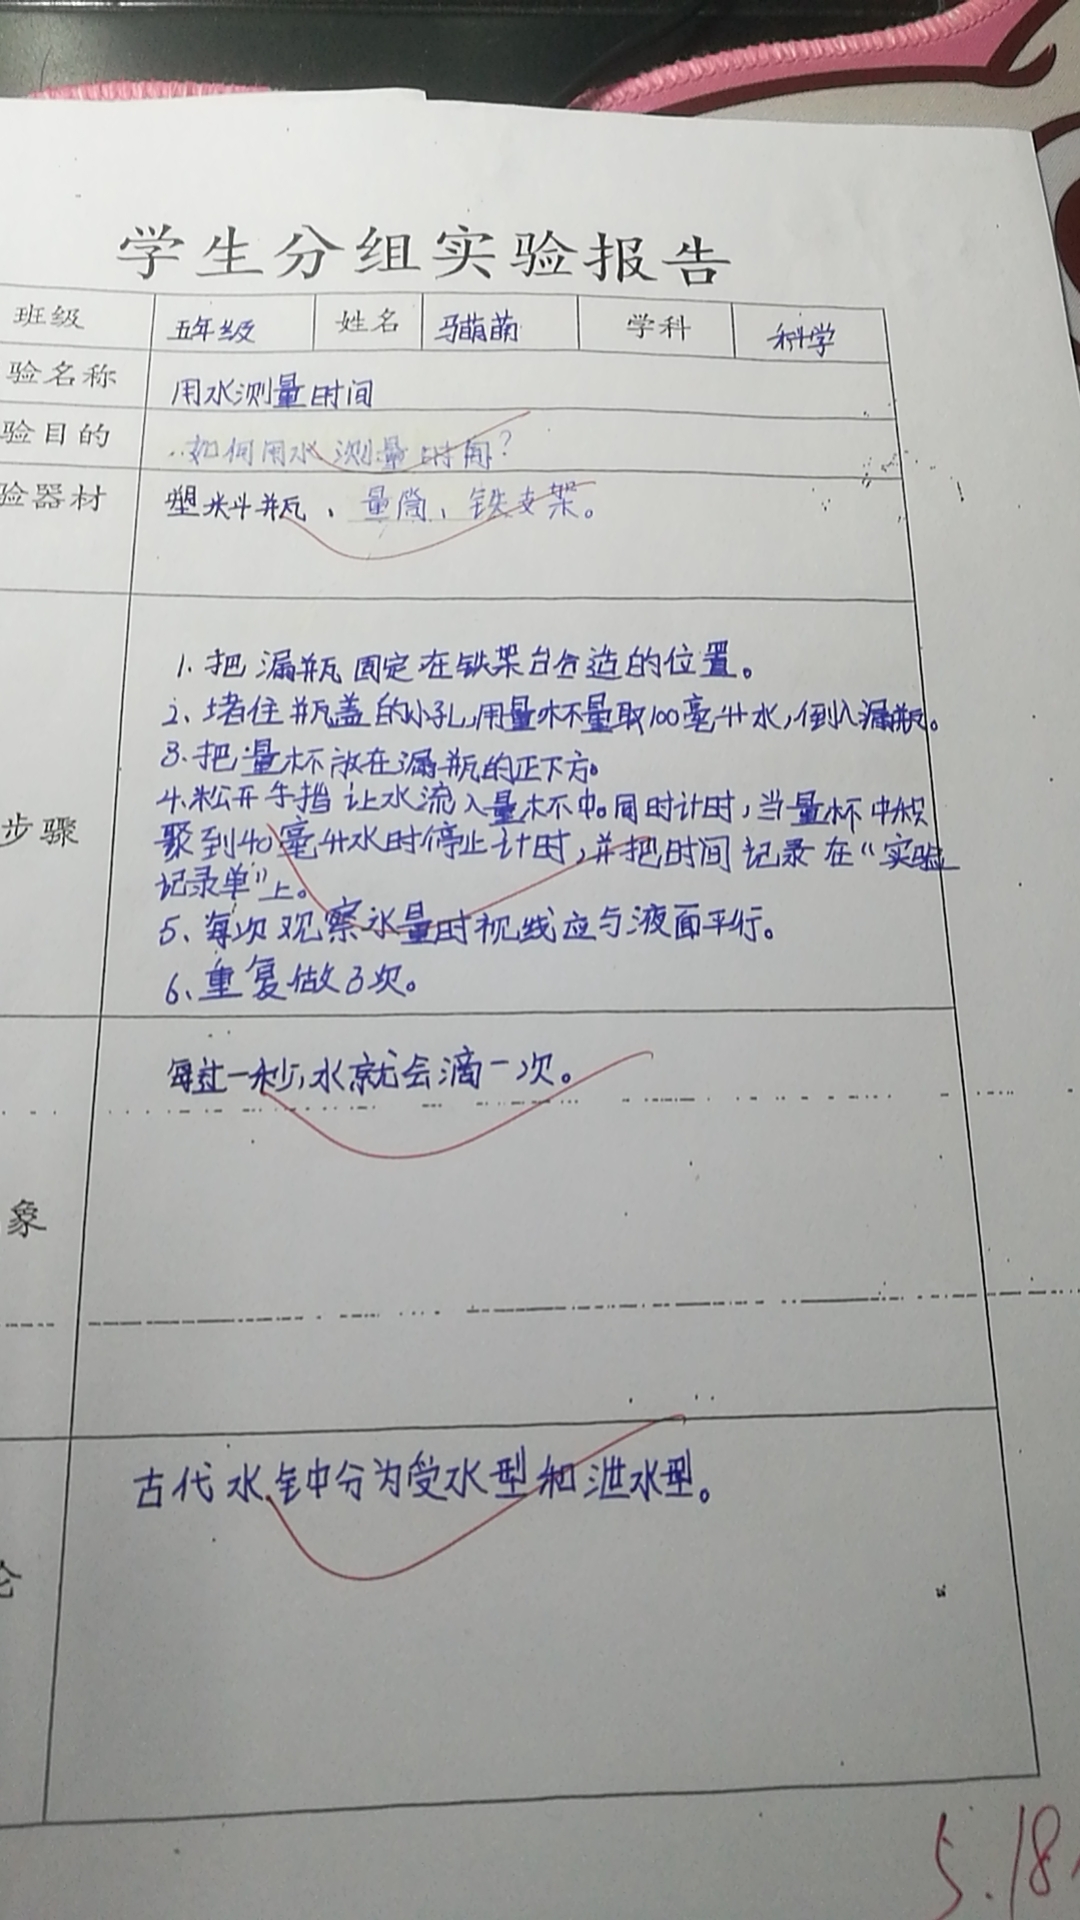 学生分组实验报告
班级 五年级 姓名 马萌萌 学科 科学
验名称 用水测量时间
验目的 如何用水测量时间?
验器材 塑料瓶、量筒、铁支架。
1.把漏瓶固定在铁架台合造的位置。
2、堵住瓶盖的小孔,用量杯量取100毫升水,倒入漏瓶。
3.把量杯放在漏瓶的正下方。
4.松开手挡让水流入量杯中。同时计时,当量杯中积
步骤 聚到40毫升水时停止计时,并把时间记录在“实验
记录单”上。
5、每次观察水量时视线应与液面平行。
6、重复做3次。
每过一秒,水就会滴一次。
象
古代水钟分为受水型和泄水型。
5.18